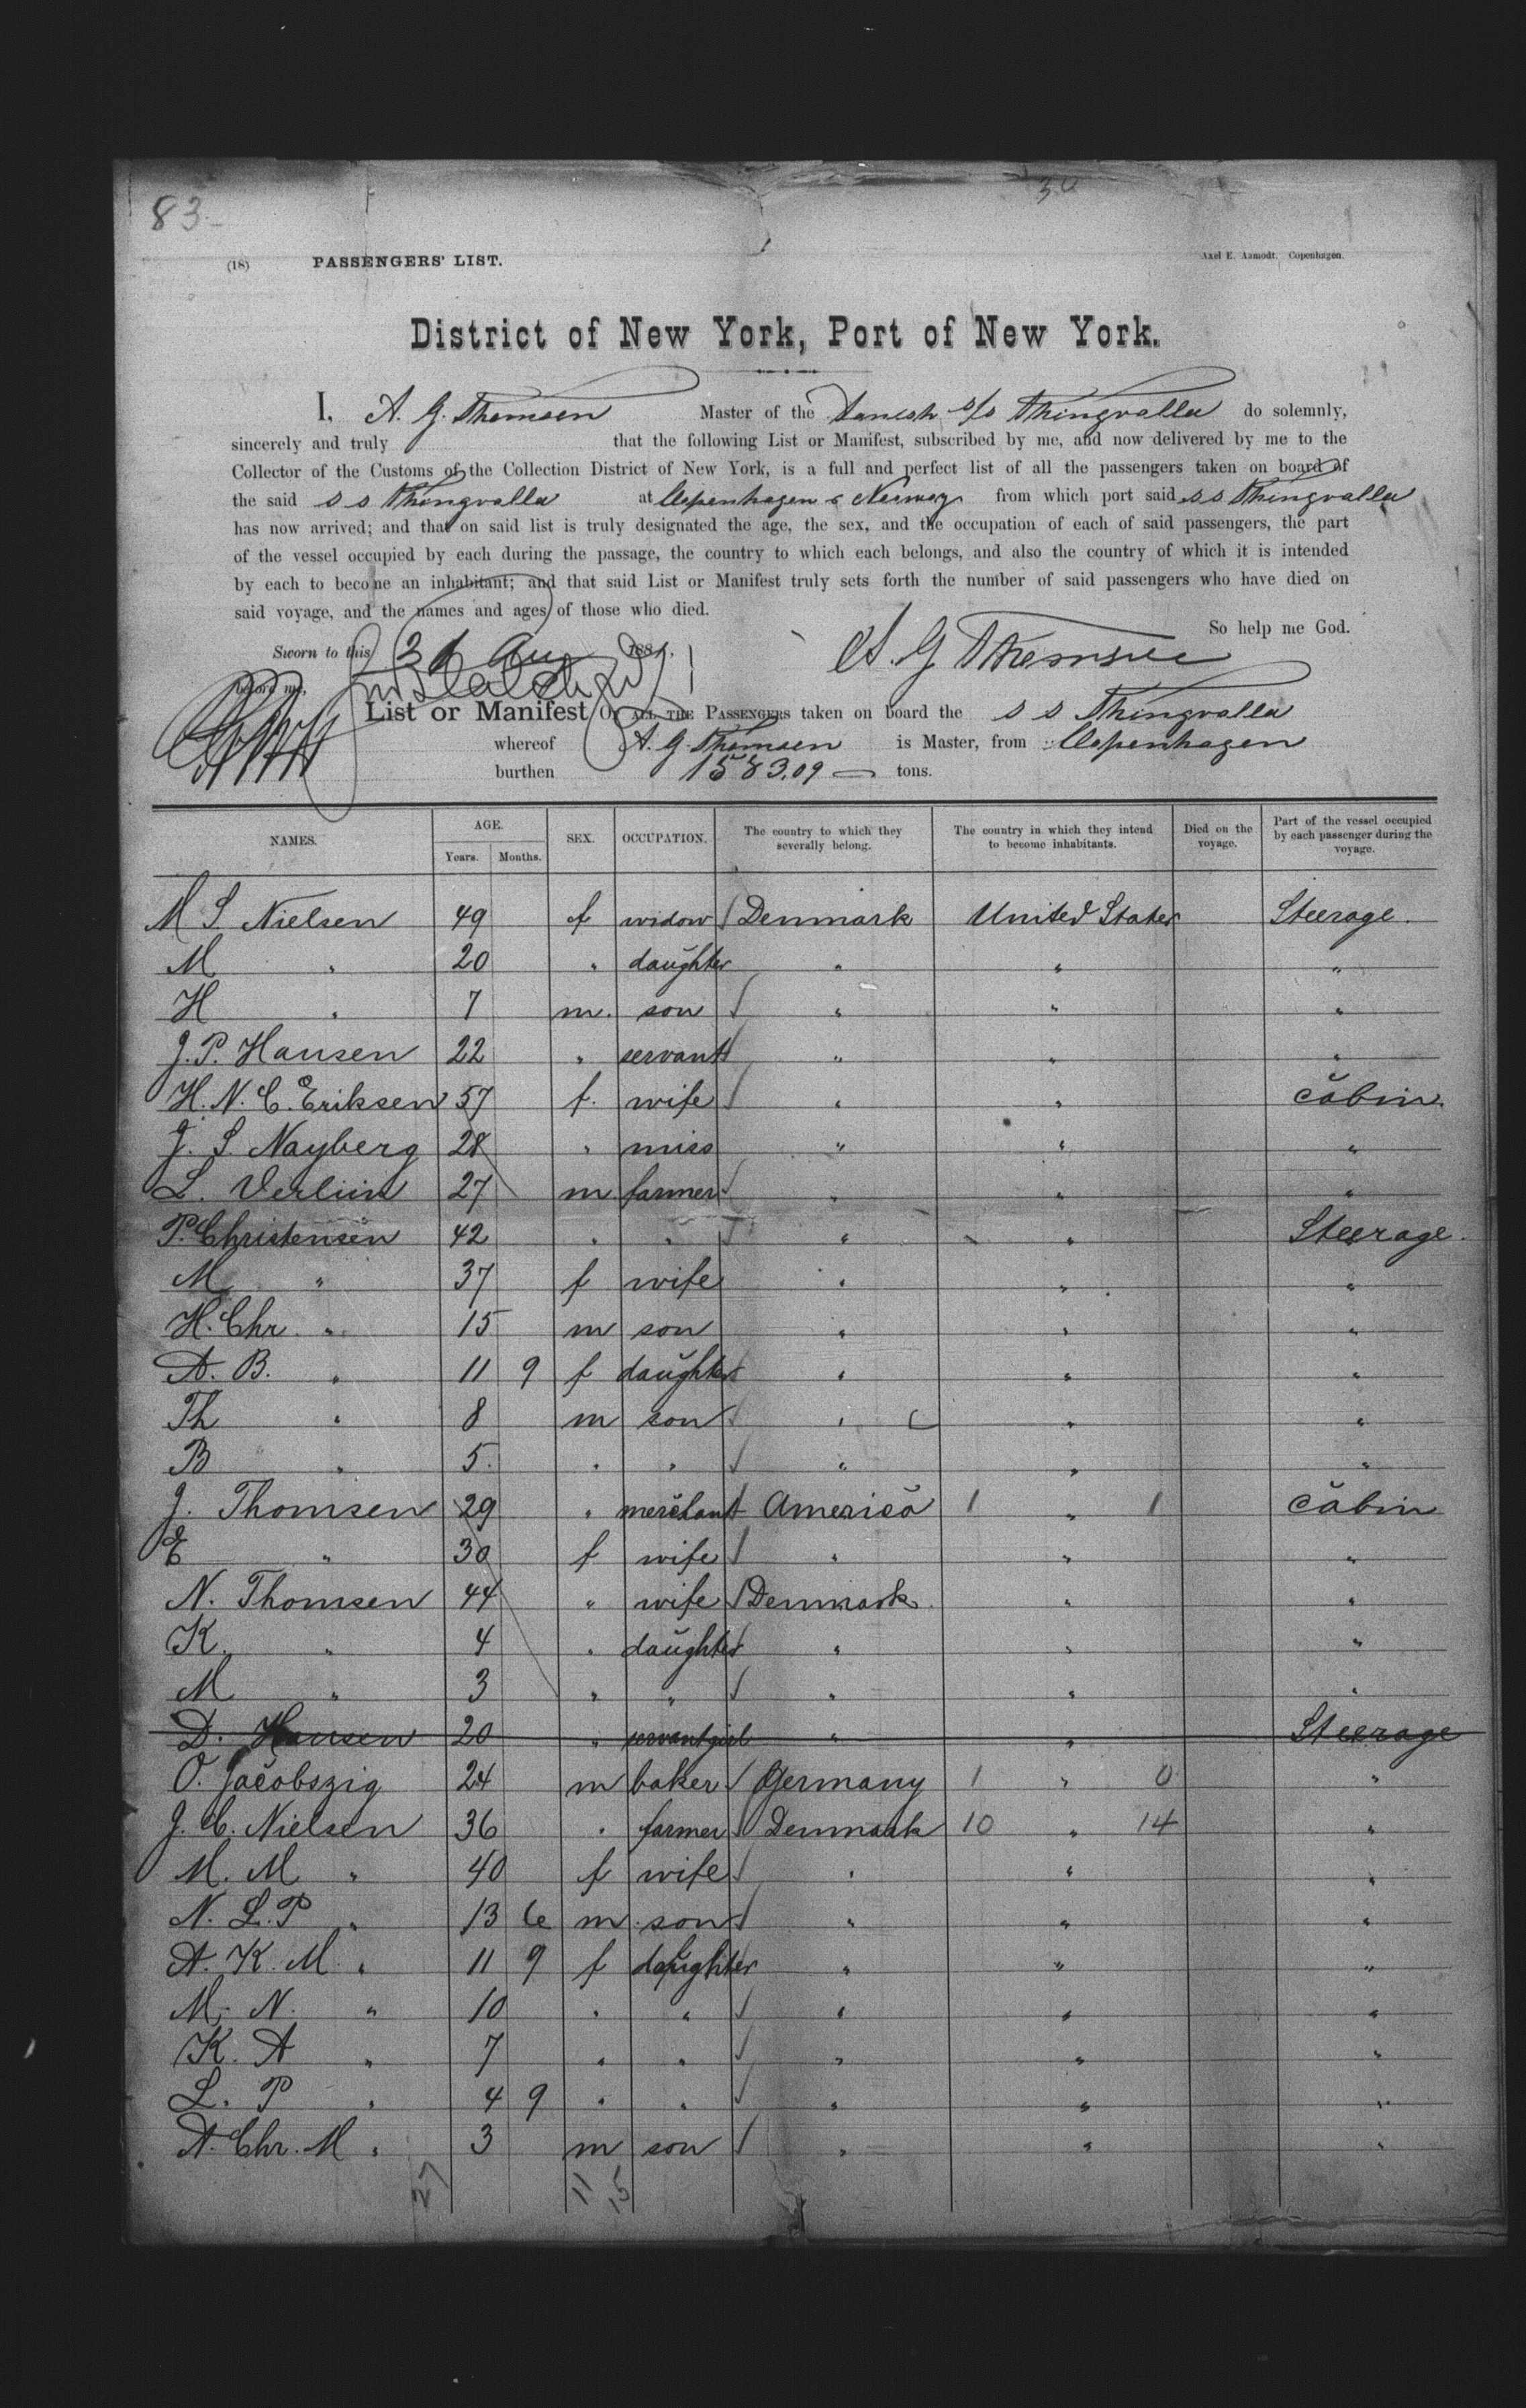 83
30
(18) PASSENGERS' LIST. Axel E. Aamodt. Copenhagen.
District of New York, Port of New York.
I, A. G. Thomsen Master of the Danish s/s Thingvalla do solemnly,
sincerely and truly that the following List or Manifest, subscribed by me, and now delivered by me to the
Collector of the Customs of the Collection District of New York, is a full and perfect list of all the passengers taken on board of
the said s s Thingvalla at Copenhagen & Norway from which port said s s Thingvalla
has now arrived; and that on said list is truly designated the age, the sex, and the occupation of each of said passengers, the part
of the vessel occupied by each during the passage, the country to which each belongs, and also the country of which it is intended
by each to become an inhabitant; and that said List or Manifest truly sets forth the number of said passengers who have died on
said voyage, and the names and ages of those who died.
So help me God.
Sworn to this 31 Aug 188
A. G Thomsen
before me,
List or Manifest OF ALL THE PASSENGERS taken on board the s s Thingvalla
whereof A. G. Thomsen is Master, from Copenhagen
burthen 1583.09 tons.
NAMES. AGE. Years. Months. SEX. OCCUPATION. The country to which they severally belong. The country in which they intend to become inhabitants. Died on the voyage. Part of the vessel occupied by each passenger during the voyage.
M S Nielsen 49 f widow Denmark United States Steerage.
M " 20 " daughter " " "
H " 7 m. son " " "
J. P. Hansen 22 " servant " " "
H. N. C. Eriksen 57 f. wife " " cabin.
J. S Nayberg 28 " miss " " "
L. Verliin 27 m farmer " " "
P. Christensen 42 " " " " Steerage.
M " 37 f wife " " "
H. Chr. " 15 m son " " "
A. B. " 11 9 f daughter " " "
Th " 8 m son " " "
B " 5. " " " " "
J. Thomsen 29 " merchant America 1 " 1 cabin
E " 30 f wife " " "
N. Thomsen 44 " wife Denmark. " "
K. " 4 " daughter " " "
M " 3 " " " " "
D. Hansen 20 " servantgirl " " Steerage
O. Jacobszig 24 m baker Germany 1 " 0 "
J. C. Nielsen 36 " farmer Denmark 10 " 14 "
M. M " 40 f wife " " "
N. L. P " 13 6 m. son " " "
A. K. M. " 11 9 f daughter " " "
M. N. " 10 " " " " "
K. A " 7 " " " " "
L. P " 4 9 " " " " "
A. Chr. M " 3 m son " " "
27 11 15